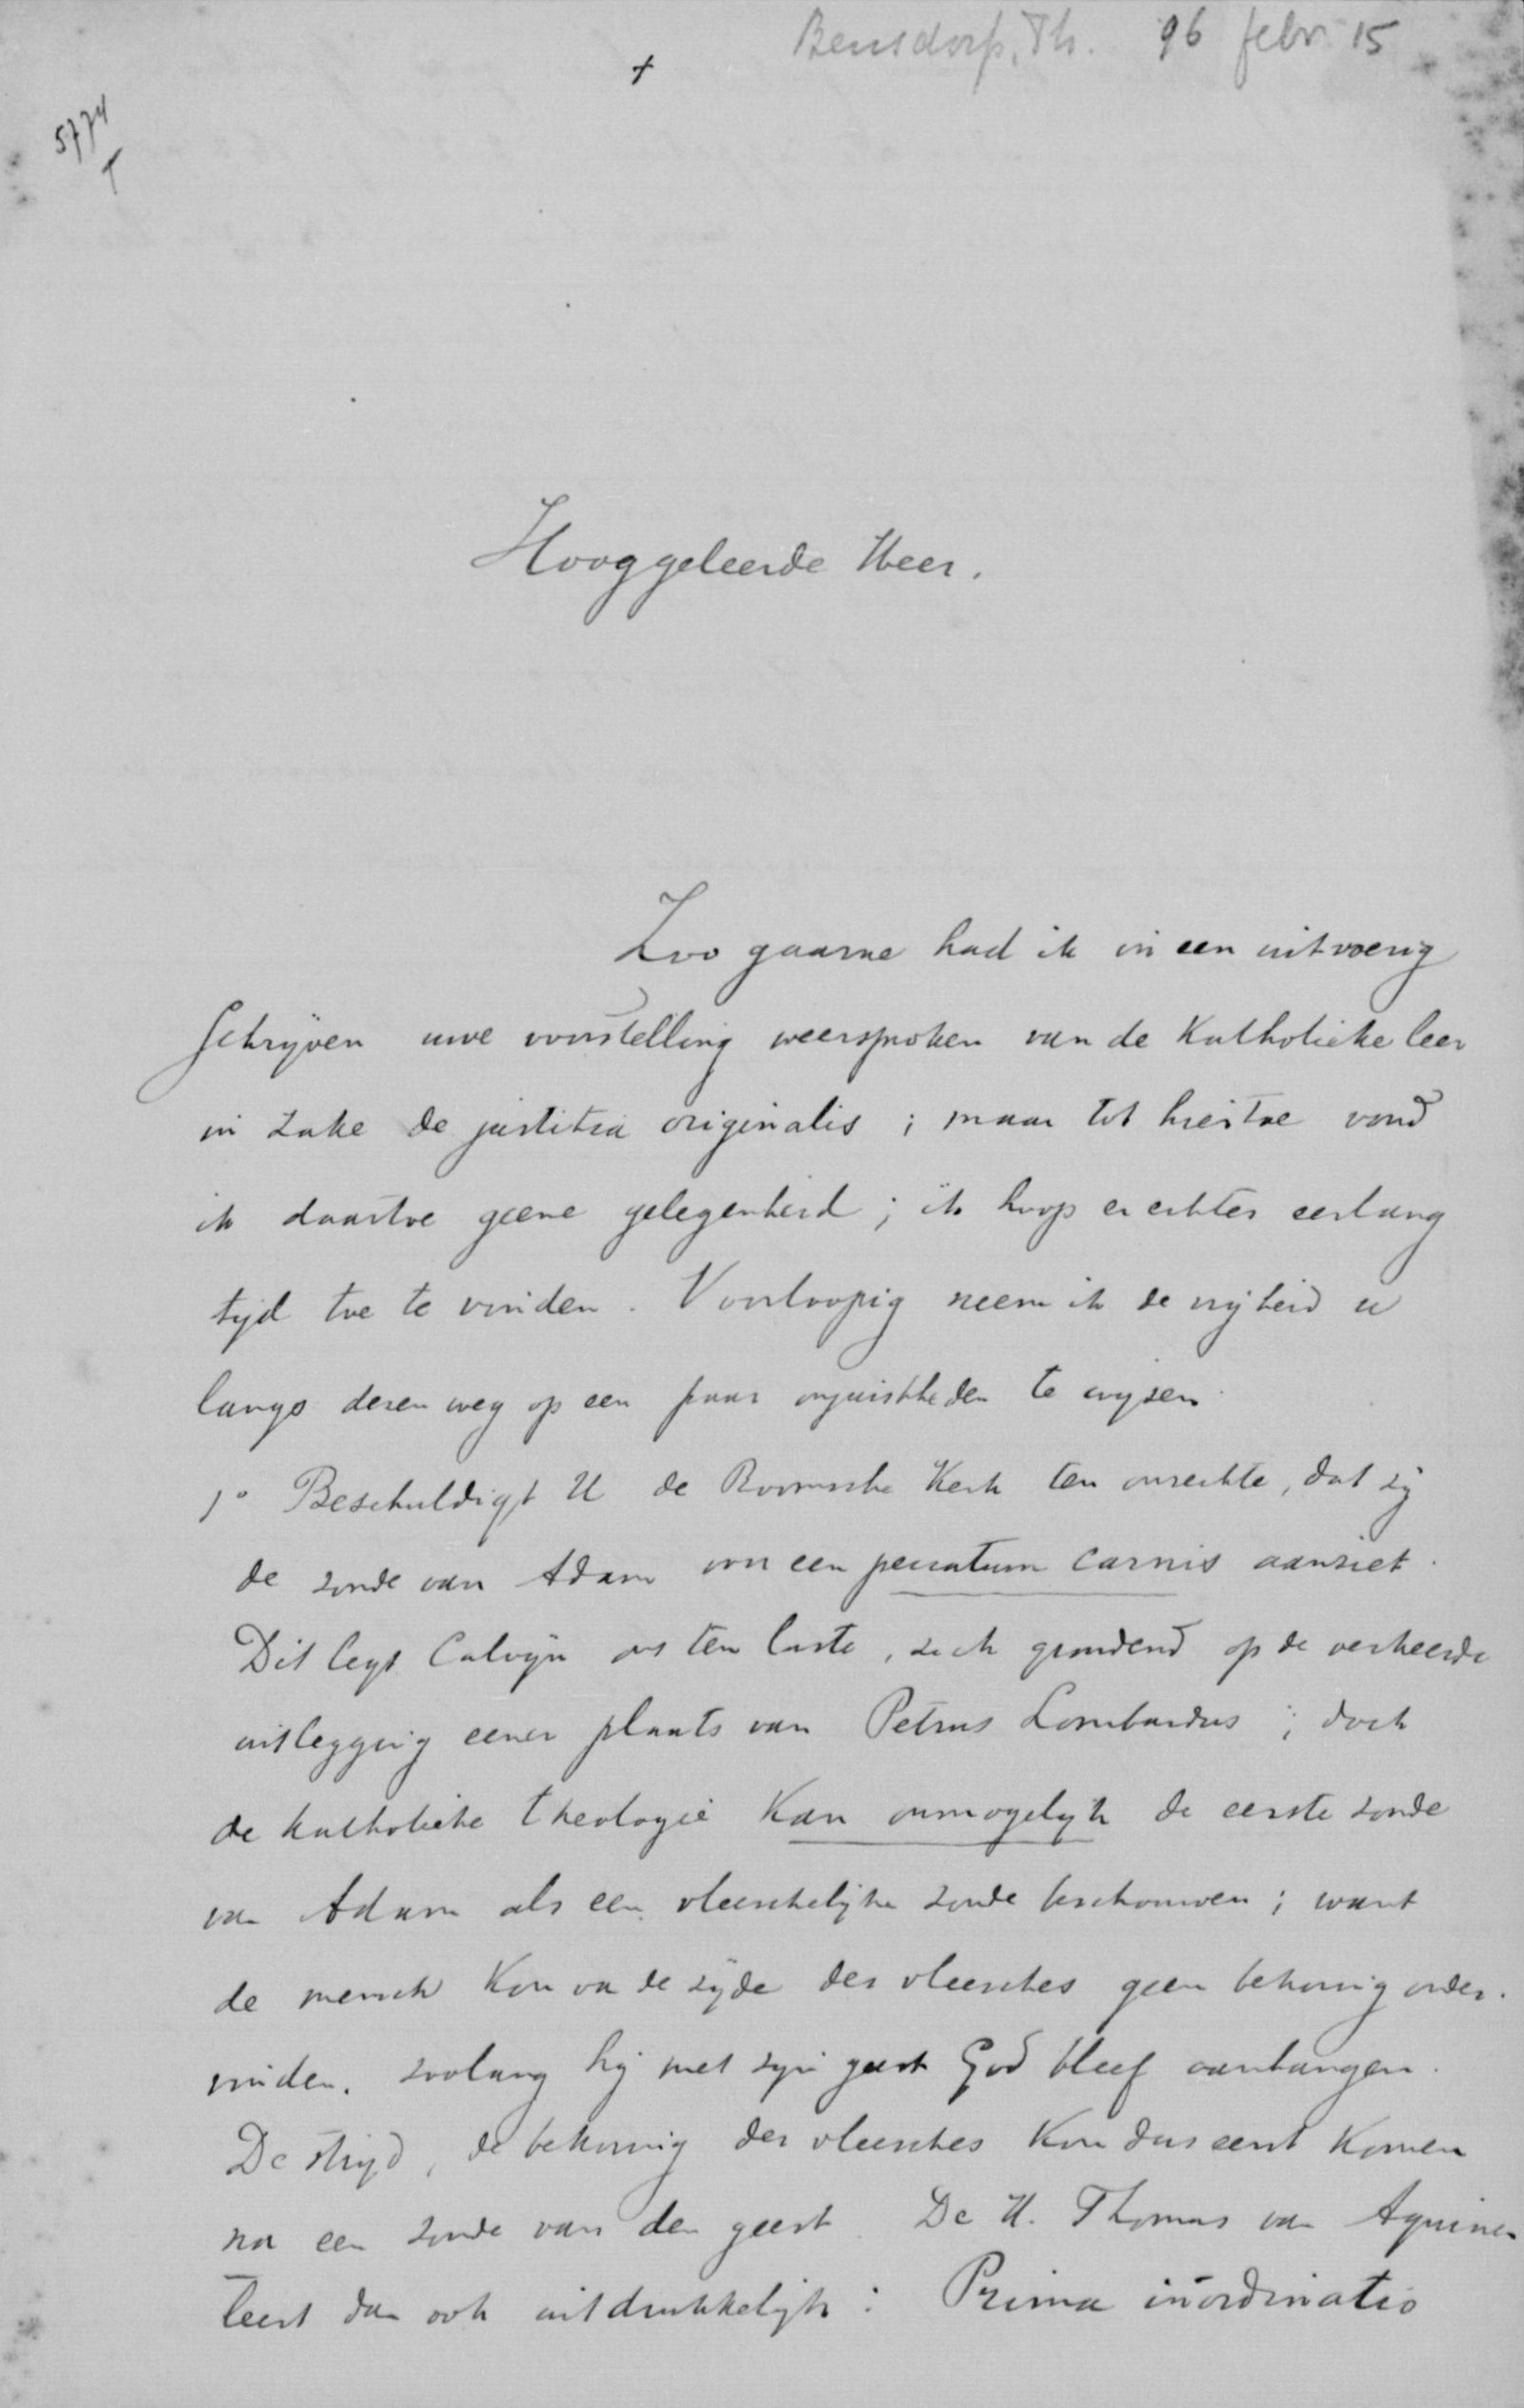 Bensdorp, Th. 96 febr 15
+
5774
Hooggeleerde Heer.
Zoo gaarne had ik in een uitvoerig
schrijven uwe voorstelling weersproken van de Katholieke leer
in zake de justitia originalis ; maar tot hiertoe vond
ik daartoe geene gelegenheid ; ik hoop er echter eerlang
tijd toe te vinden. Voorloopig neem ik de vrijheid U
langs dezen weg op een paar onjuistheden te wijzen.
1° Beschuldigt U de Roomsche Kerk ten onrechte, dat zij
de zonde van Adam voor een peccatum carnis aanziet.
Dit legt Calvijn ons ten laste, zich grondend op de verkeerde
uitlegging eener plaats van Petrus Lombardus ; doch
de katholieke theologie kan onmogelijk de eerste zonde
van Adam als een vleeschelijke zonde beschouwen ; want
de mensch kon van de zijde des vleesches geen bekoring onder-
vinden, zoolang hij met zijn geest God bleef aanhangen.
De strijd, de bekoring des vleesches kon dus eerst komen
na een zonde van den geest. De H. Thomas van Aquinen
leert dan ook uitdrukkelijk : Prima inordinatio